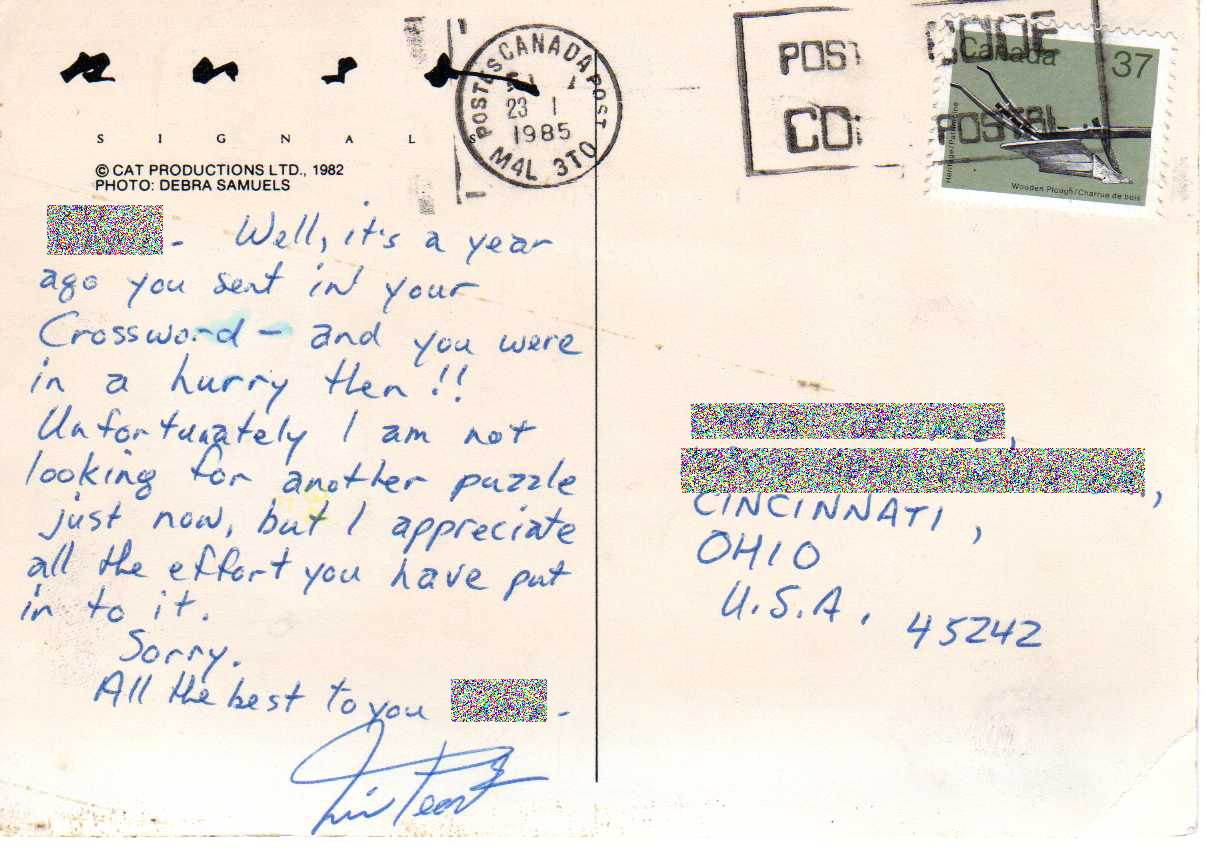 SIGNALS
© CAT PRODUCTIONS LTD., 1982
PHOTO: DEBRA SAMUELS
POSTES CANADA POST
23 I
1985
M4L 3T0
POST CODE
CO POSTAL
Canada 37
Heritage/Patrimoine
Wooden Plough/Charrue de bois
- Well, it's a year
ago you sent in your
Crossword - and you were
in a hurry then!!
Unfortunately I am not
looking for another puzzle
just now, but I appreciate
all the effort you have put
in to it.
Sorry.
All the best to you -
CINCINNATI,
OHIO
U.S.A. 45242